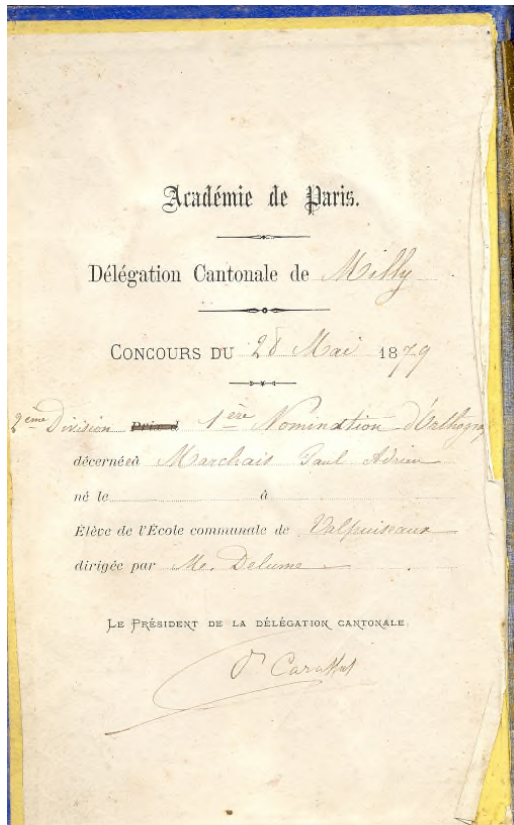 Académie de Paris.
Délégation Cantonale de Milly
CONCOURS DU 28 Mai 1879
2ème Division 1ère Nomination d'Orthogra
décernée à Marchais Paul Adrien
né le à
Élève de l'École communale de Valpuiseaux
dirigée par Me. Delume
LE PRÉSIDENT DE LA DÉLÉGATION CANTONALE